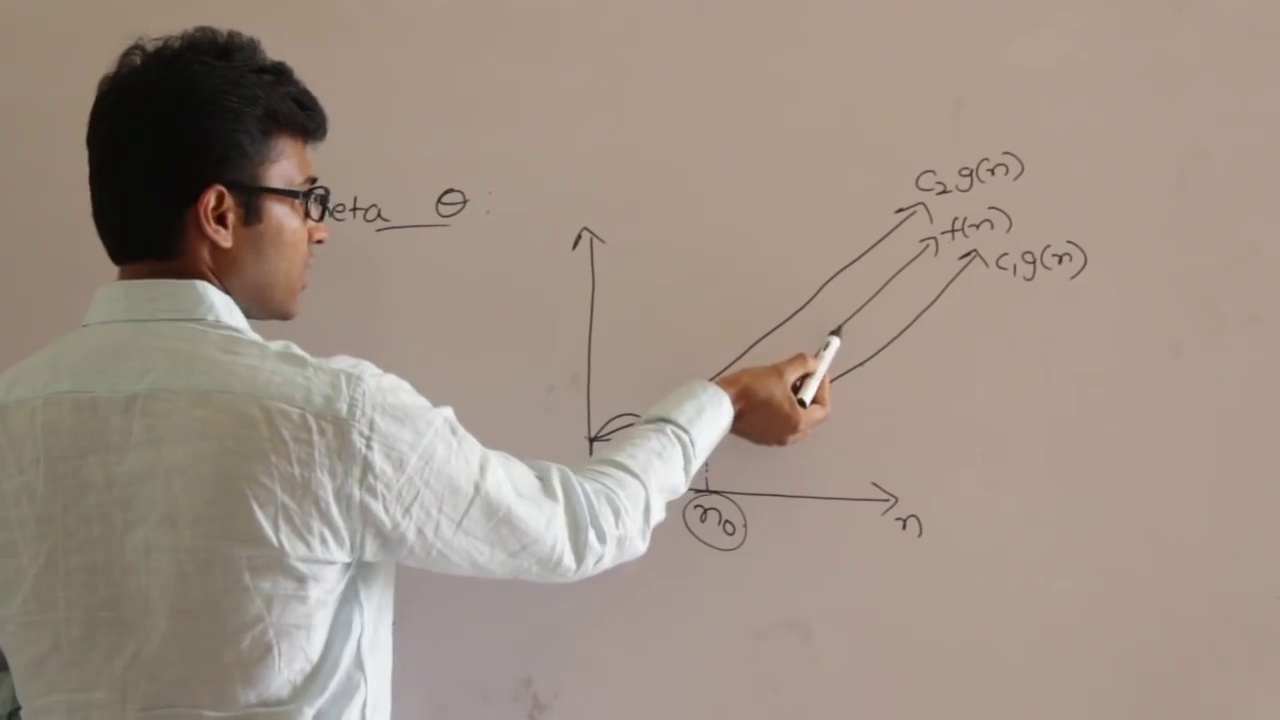 heta θ :
c₂g(n)
f(n)
c₁g(n)
n₀
n